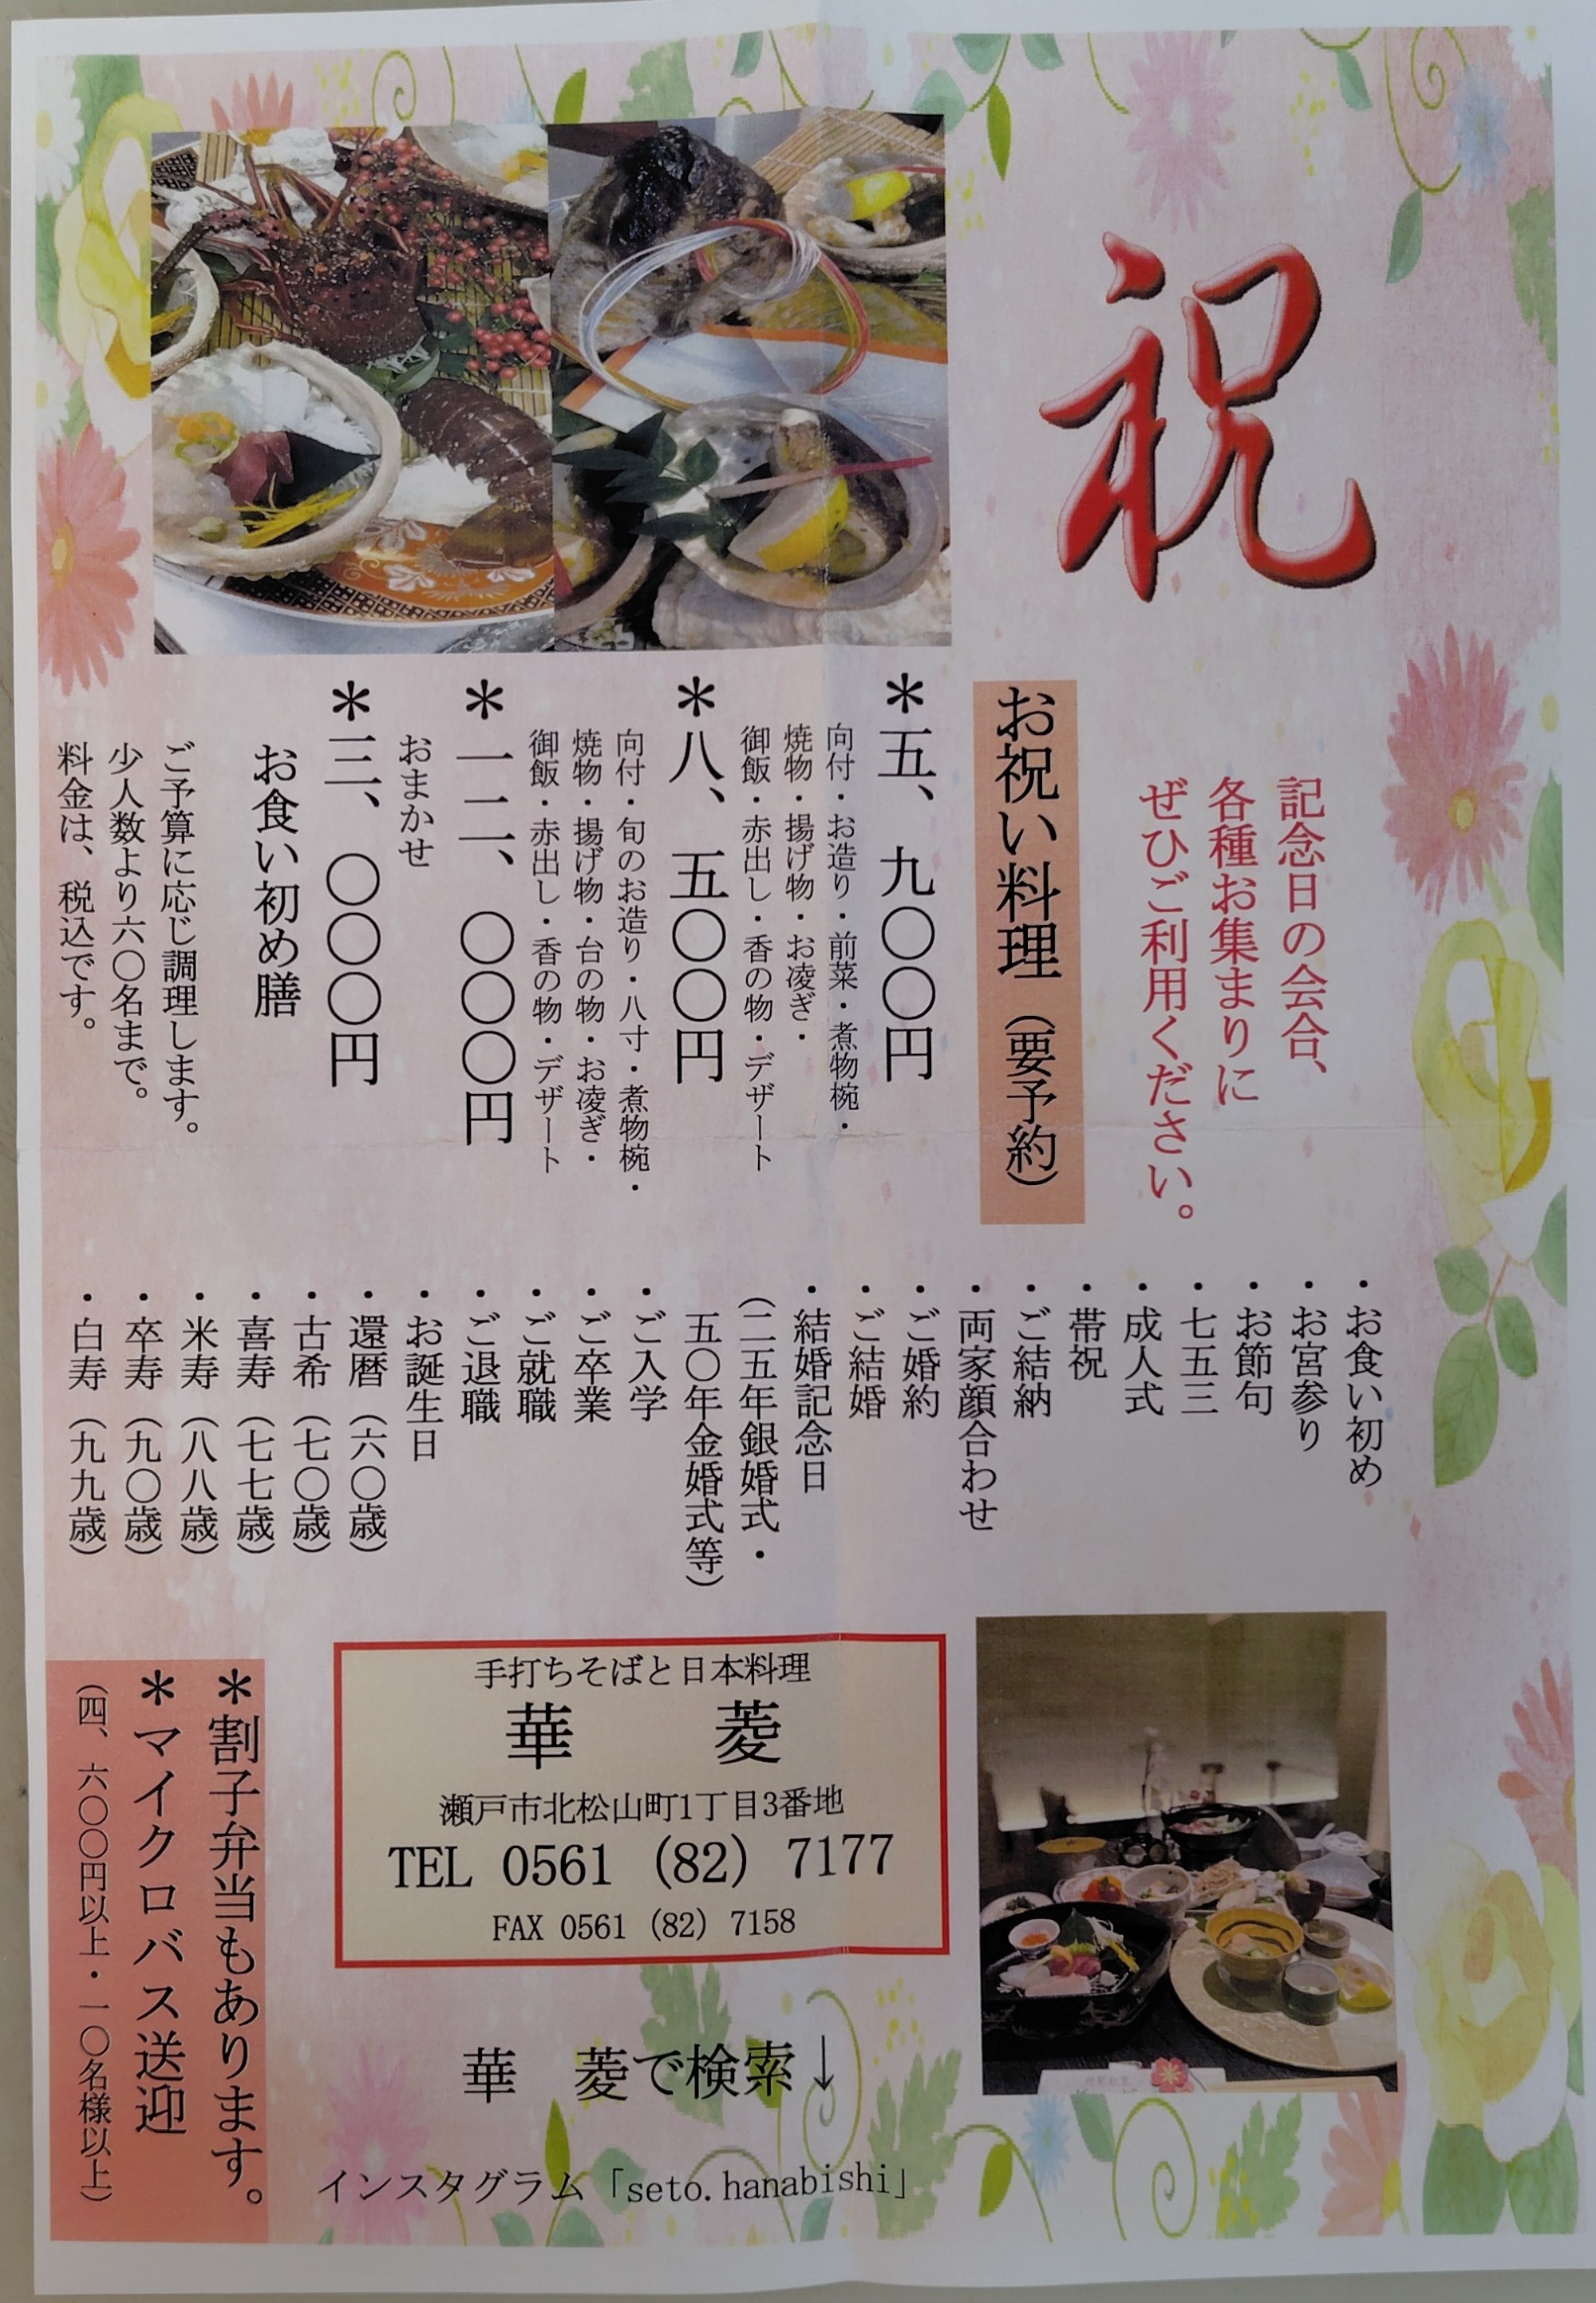 祝
記念日の会合、
各種お集まりに
ぜひご利用ください。
お祝い料理（要予約）
＊五、九〇〇円
向付・お造り・前菜・煮物椀・
焼物・揚げ物・お凌ぎ・
御飯・赤出し・香の物・デザート
＊八、五〇〇円
向付・旬のお造り・八寸・煮物椀・
焼物・揚げ物・台の物・お凌ぎ・
御飯・赤出し・香の物・デザート
＊一二、〇〇〇円
おまかせ
＊三、〇〇〇円
お食い初め膳
ご予算に応じ調理します。
少人数より六〇名まで。
料金は、税込です。
・お食い初め
・お宮参り
・お節句
・七五三
・成人式
・帯祝
・ご結納
・両家顔合わせ
・ご婚約
・ご結婚
・結婚記念日
（二五年銀婚式・
五〇年金婚式等）
・ご入学
・ご卒業
・ご就職
・ご退職
・お誕生日
・還暦（六〇歳）
・古希（七〇歳）
・喜寿（七七歳）
・米寿（八八歳）
・卒寿（九〇歳）
・白寿（九九歳）
手打ちそばと日本料理
華　菱
瀬戸市北松山町1丁目3番地
TEL 0561（82）7177
FAX 0561（82）7158
華　菱で検索↓
インスタグラム「seto.hanabishi」
＊割子弁当もあります。
＊マイクロバス送迎
（四、六〇〇円以上・一〇名様以上）